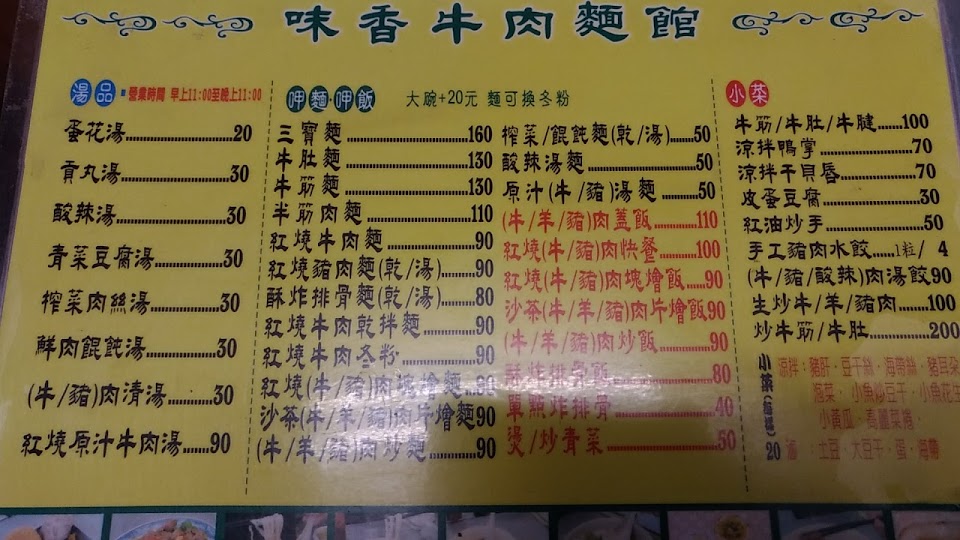 味香牛肉麵館
湯品 營業時間 早上11:00至晚上11:00
蛋花湯 20
貢丸湯 30
酸辣湯 30
青菜豆腐湯 30
榨菜肉絲湯 30
鮮肉餛飩湯 30
(牛/豬)肉清湯 30
紅燒原汁牛肉湯 90
呷麵·呷飯 大碗+20元 麵可換冬粉
三寶麵 160
牛肚麵 130
牛筋麵 130
半筋肉麵 110
紅燒牛肉麵 90
紅燒豬肉麵(乾/湯) 90
酥炸排骨麵(乾/湯) 80
紅燒牛肉乾拌麵 90
紅燒牛肉冬粉 90
紅燒(牛/豬)肉塊燴麵 90
沙茶(牛/羊/豬)肉片燴麵90
(牛/羊/豬)肉炒麵 90
榨菜/餛飩麵(乾/湯) 50
酸辣湯麵 50
原汁(牛/豬)湯麵 50
(牛/羊/豬)肉蓋飯 110
紅燒(牛/豬)肉快餐 100
紅燒(牛/豬)肉塊燴飯 90
沙茶(牛/羊/豬)肉片燴飯90
(牛/羊/豬)肉炒飯 90
酥炸排骨飯 80
單點炸排骨 40
燙/炒青菜 50
小菜
牛筋/牛肚/牛腱 100
涼拌鴨掌 70
涼拌干貝唇 70
皮蛋豆腐 30
紅油炒手 50
手工豬肉水餃 1粒/ 4
(牛/豬/酸辣)肉湯餃90
生炒牛/羊/豬肉 100
炒牛筋/牛肚 200
小菜 20
涼拌：豬肝·豆干絲·海帶絲·豬耳朵
泡菜·小魚炒豆干·小魚花生
小黃瓜·高麗菜捲·
滷：土豆·大豆干·蛋·海帶